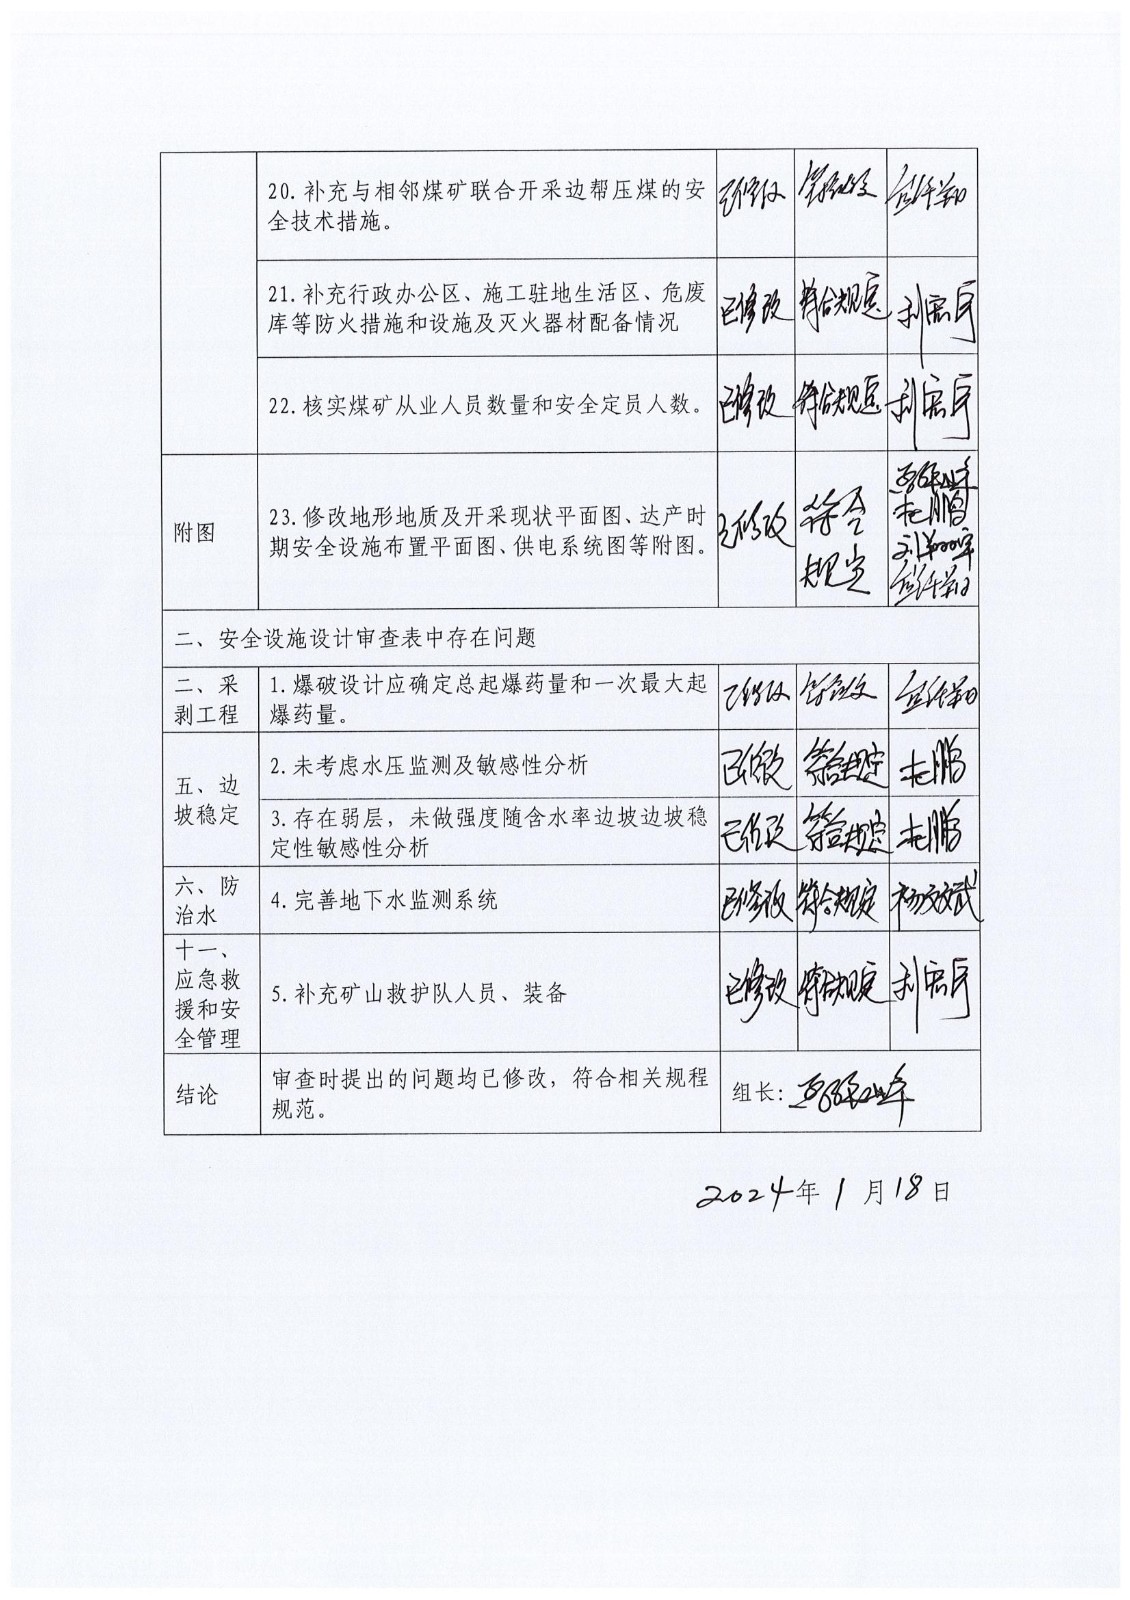 20.补充与相邻煤矿联合开采边帮压煤的安
全技术措施。
已修改
21.补充行政办公区、施工驻地生活区、危废
库等防火措施和设施及灭火器材配备情况
已修改
符合规定
22.核实煤矿从业人员数量和安全定员人数。
已修改
符合规定
附图
23.修改地形地质及开采现状平面图、达产时
期安全设施布置平面图、供电系统图等附图。
已修改
符合
规定
二、安全设施设计审查表中存在问题
二、采
剥工程
1.爆破设计应确定总起爆药量和一次最大起
爆药量。
已修改
五、边
坡稳定
2.未考虑水压监测及敏感性分析
已修改
符合规定
杜鹏
3.存在弱层，未做强度随含水率边坡边坡稳
定性敏感性分析
已修改
符合规定
杜鹏
六、防
治水
4.完善地下水监测系统
已修改
符合规定
杨文斌
十一、
应急救
援和安
全管理
5.补充矿山救护队人员、装备
已修改
符合规定
结论
审查时提出的问题均已修改，符合相关规程
规范。
组长：
2024年1月18日